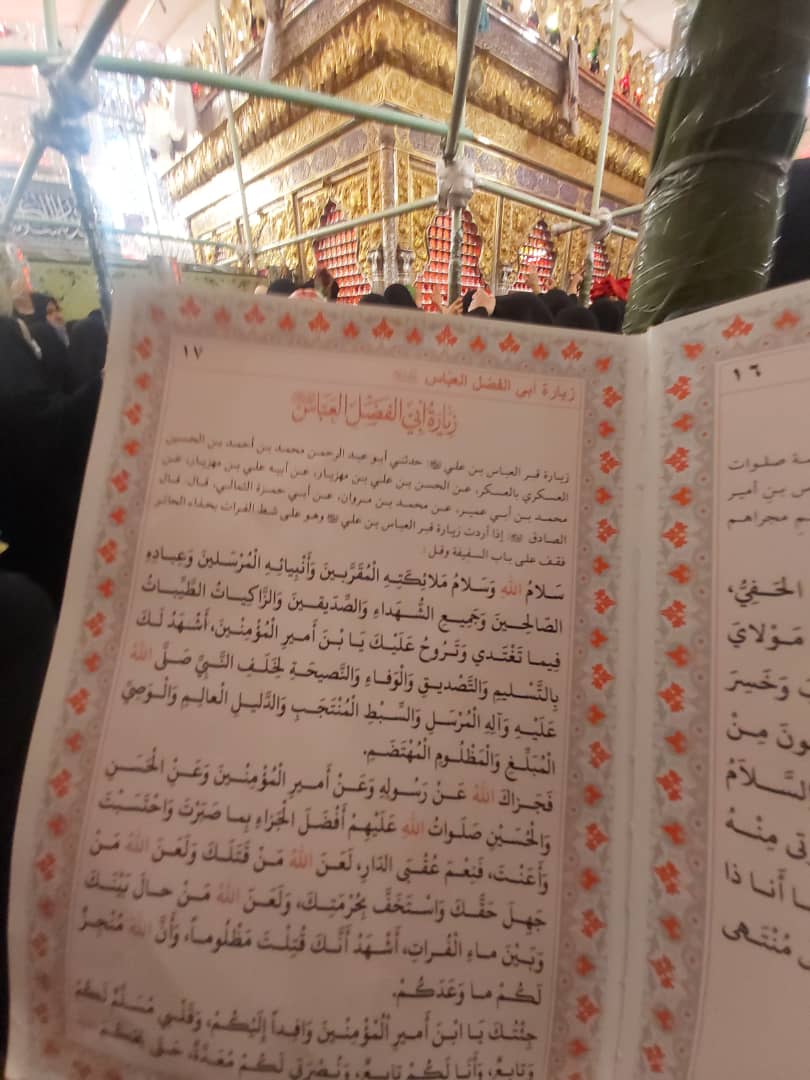 ١٦
ة صلوات
س بن أمير
م مجراهم
الحَفِيُّ،
مَوْلايَ
وَخَسِرَ
ونَ مِنْ
السَّلامُ
مِنْهُ
أَنا ذا
مُنْتَهى
١٧
زيارة أبي الفضل العباس
زيارة أبي الفضل العباس
زيارة قبر العباس بن علي: حدثني أبو عبد الرحمن محمد بن أحمد بن الحسين
العسكري بالعسكر، عن الحسن بن علي بن مهزيار، عن أبيه علي بن مهزيار، عن
محمد بن أبي عمير، عن محمد بن مروان، عن أبي حمزة الثمالي، قال: قال
الصادق: إذا أردت زيارة قبر العباس بن علي وهو على شط الفرات بحذاء الحائر
فقف على باب السقيفة وقل:
سَلامُ اللهِ وَسَلامُ مَلائِكَتِهِ الْمُقَرَّبينَ وَأَنْبِيائِهِ الْمُرْسَلينَ وَعِبادِهِ
الصّالِحينَ وَجَميعِ الشُّهَداءِ وَالصِّدّيقينَ وَالزّاكِياتُ الطَّيِّباتُ
فيما تَغْتَدي وَتَرُوحُ عَلَيْكَ يَا بْنَ أَميرِ الْمُؤْمِنينَ، أَشْهَدُ لَكَ
بِالتَّسْليمِ وَالتَّصْديقِ وَالْوَفاءِ وَالنَّصيحَةِ لِخَلَفِ النَّبِيِّ صَلَّى اللهُ
عَلَيْهِ وَآلِهِ الْمُرْسَلِ وَالسِّبْطِ الْمُنْتَجَبِ وَالدَّليلِ الْعالِمِ وَالْوَصِيِّ
الْمُبَلِّغِ وَالْمَظْلُومِ الْمُهْتَضَمِ.
فَجَزاكَ اللهُ عَنْ رَسُولِهِ وَعَنْ أَميرِ الْمُؤْمِنينَ وَعَنِ الْحَسَنِ
وَالْحُسَيْنِ صَلَواتُ اللهِ عَلَيْهِمْ أَفْضَلَ الْجَزاءِ بِما صَبَرْتَ وَاحْتَسَبْتَ
وَأَعَنْتَ، فَنِعْمَ عُقْبَى الدّارِ، لَعَنَ اللهُ مَنْ قَتَلَكَ وَلَعَنَ اللهُ مَنْ
جَهِلَ حَقَّكَ وَاسْتَخَفَّ بِحُرْمَتِكَ، وَلَعَنَ اللهُ مَنْ حالَ بَيْنَكَ
وَبَيْنَ ماءِ الْفُراتِ، أَشْهَدُ أَنَّكَ قُتِلْتَ مَظْلُوماً، وَأَنَّ اللهَ مُنْجِزٌ
لَكُمْ ما وَعَدَكُمْ.
جِئْتُكَ يَا ابْنَ أَميرِ الْمُؤْمِنينَ وَافِداً إِلَيْكُمْ، وَقَلْبي مُسَلِّمٌ لَكُمْ
وَتابِعٌ، وَأَنَا لَكُمْ تابِعٌ، وَنُصْرَتي لَكُمْ مُعَدَّةٌ، حَتّى